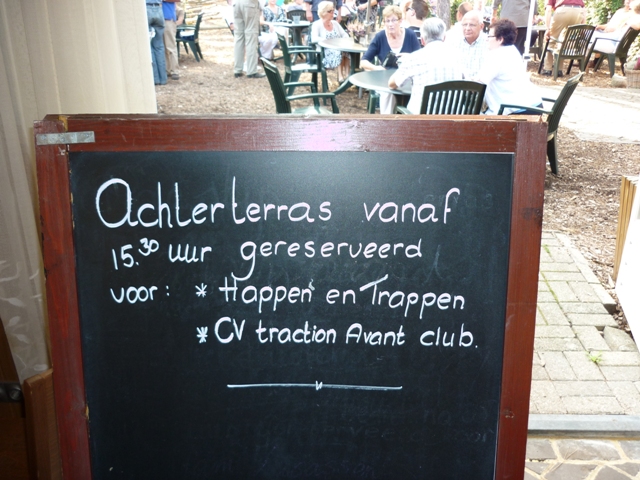 Achterterras vanaf
15.30 uur gereserveerd
voor: * Happen en Trappen
* CV traction Avant club.